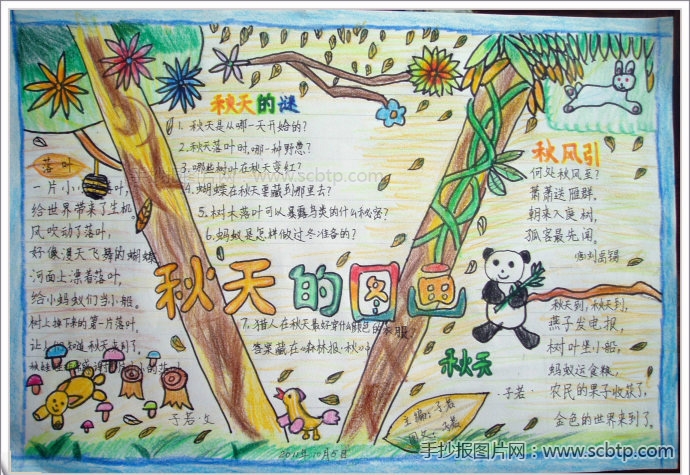 秋天的谜
1. 秋天是从哪一天开始的?
2. 秋天落叶时,哪一种野
3. 哪些树叶在秋天变红?
4. 蝴蝶在秋天要藏到那里去?
5. 树木落叶可以暴露鸟类的什么秘密?
6. 蚂蚁是怎样做过冬准备的?
7. 猎人在秋天最好穿什么颜色的衣服
答案藏在《森林报·秋》
落叶
一片小小 叶,
给世界带来了生机。
风吹动了落叶,
好像漫天飞舞的蝴蝶
河面上漂着落叶,
给小蚂蚁们当小船。
树上掉下来的第一片落叶,
让人们知道秋天来到了。
子若·文
秋天的图画
秋风引
何处秋风至?
萧萧送雁群。
朝来入庭树,
孤客最先闻。
刘禹锡
秋天到,秋天到,
燕子发电报,
树叶当小船,
蚂蚁运食粮,
农民的果子收获了,
金色的世界来到了。
·子若·
秋天
主编:子若
子若
2011年10月5日
手抄报图片网:www.scbtp.com
www.scbtp.com